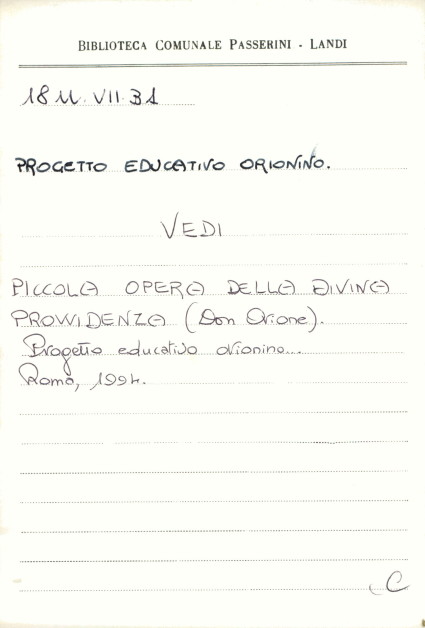 BIBLIOTECA COMUNALE PASSERINI - LANDI
18 U. VII. 31
PROGETTO EDUCATIVO ORIONINO.
VEDI
PICCOLA OPERA DELLA DIVINA
PROVVIDENZA (Don Orione).
Progetto educativo orionino...
Roma, 1994.
C